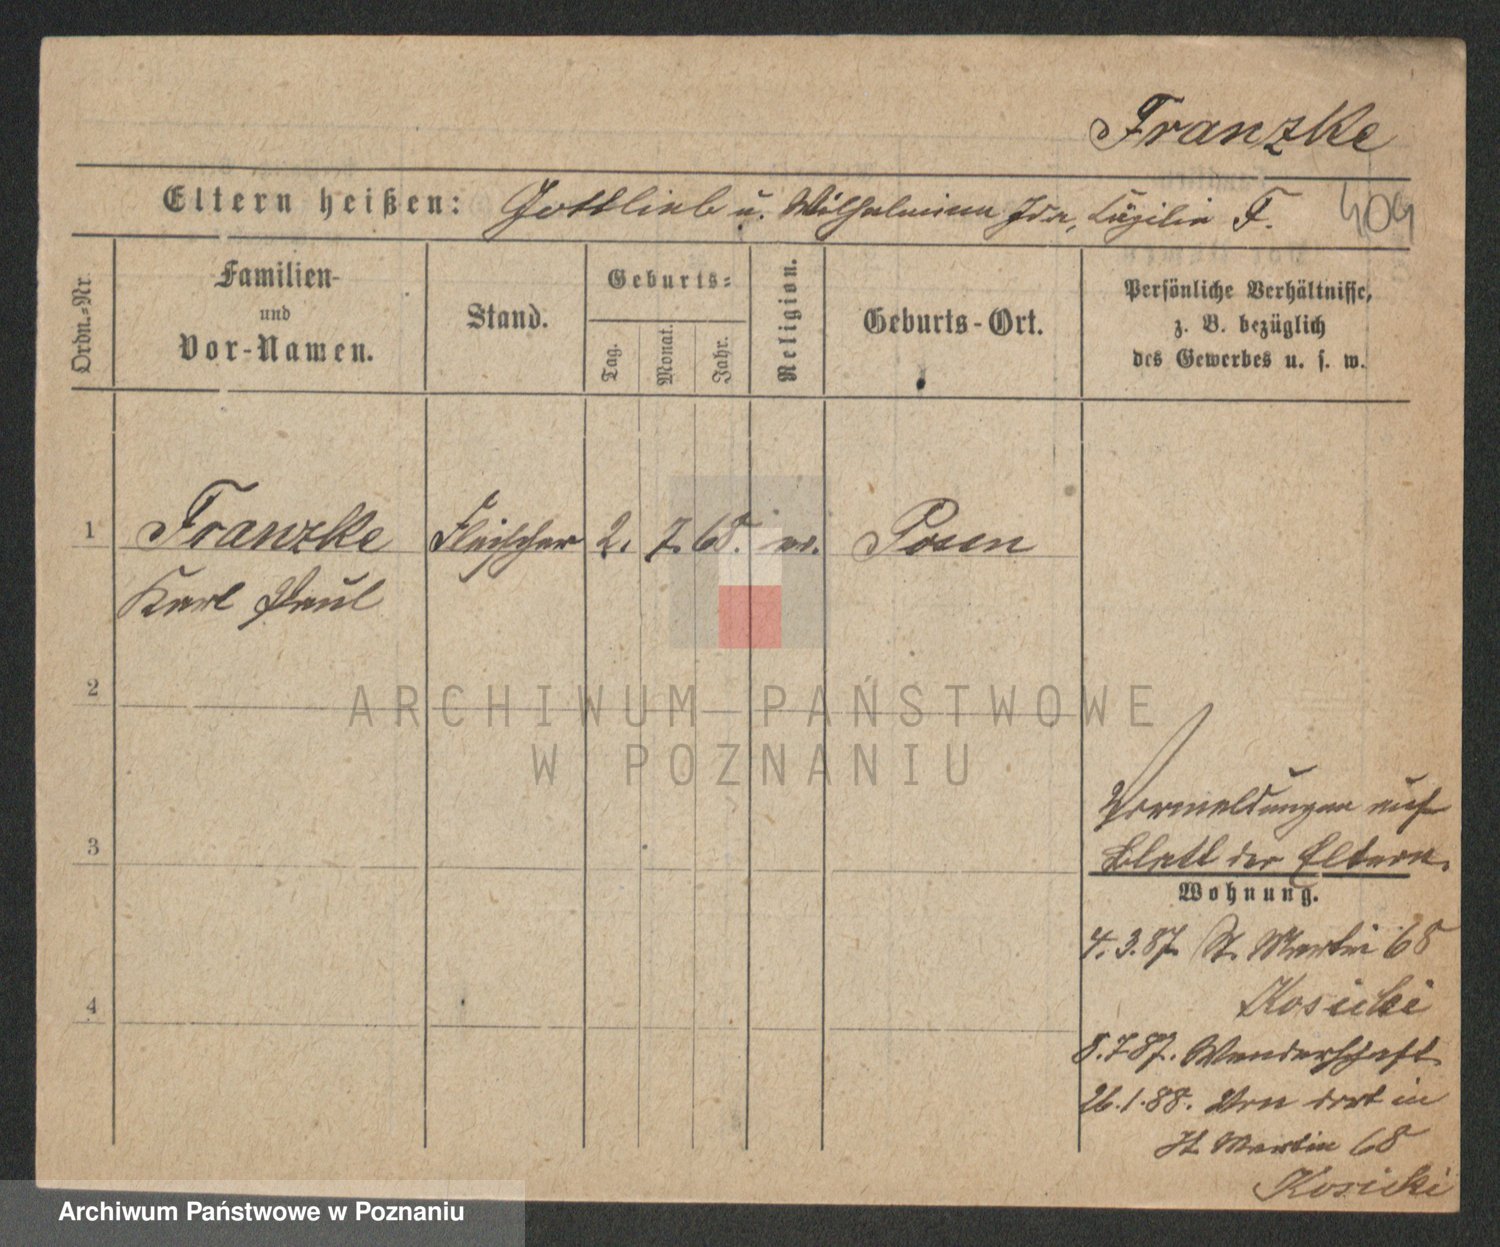 Franzke
Eltern heißen: Gottlieb u. Wilhelmina Ida, Cäzilie F.
409
Ordn.-Nr.
Familien-
und
Vor-Namen.
Stand.
Geburts-
Tag.
Monat.
Jahr.
Religion.
Geburts-Ort.
Persönliche Verhältnisse,
z. B. bezüglich
des Gewerbes u. s. w.
1
Franzke
Fleischer
2.
7.
68.
ev.
Posen
Karl Paul
2
ARCHIWUM PAŃSTWOWE
W POZNANIU
Vormeldungen auf
3
Blatt der Eltern.
Wohnung.
4.3.87. St. Martin 68
Kosicki
4
8.7.87. Wanderschaft
26.1.88. Von dort in
St. Martin 68
Kosicki
Archiwum Państwowe w Poznaniu